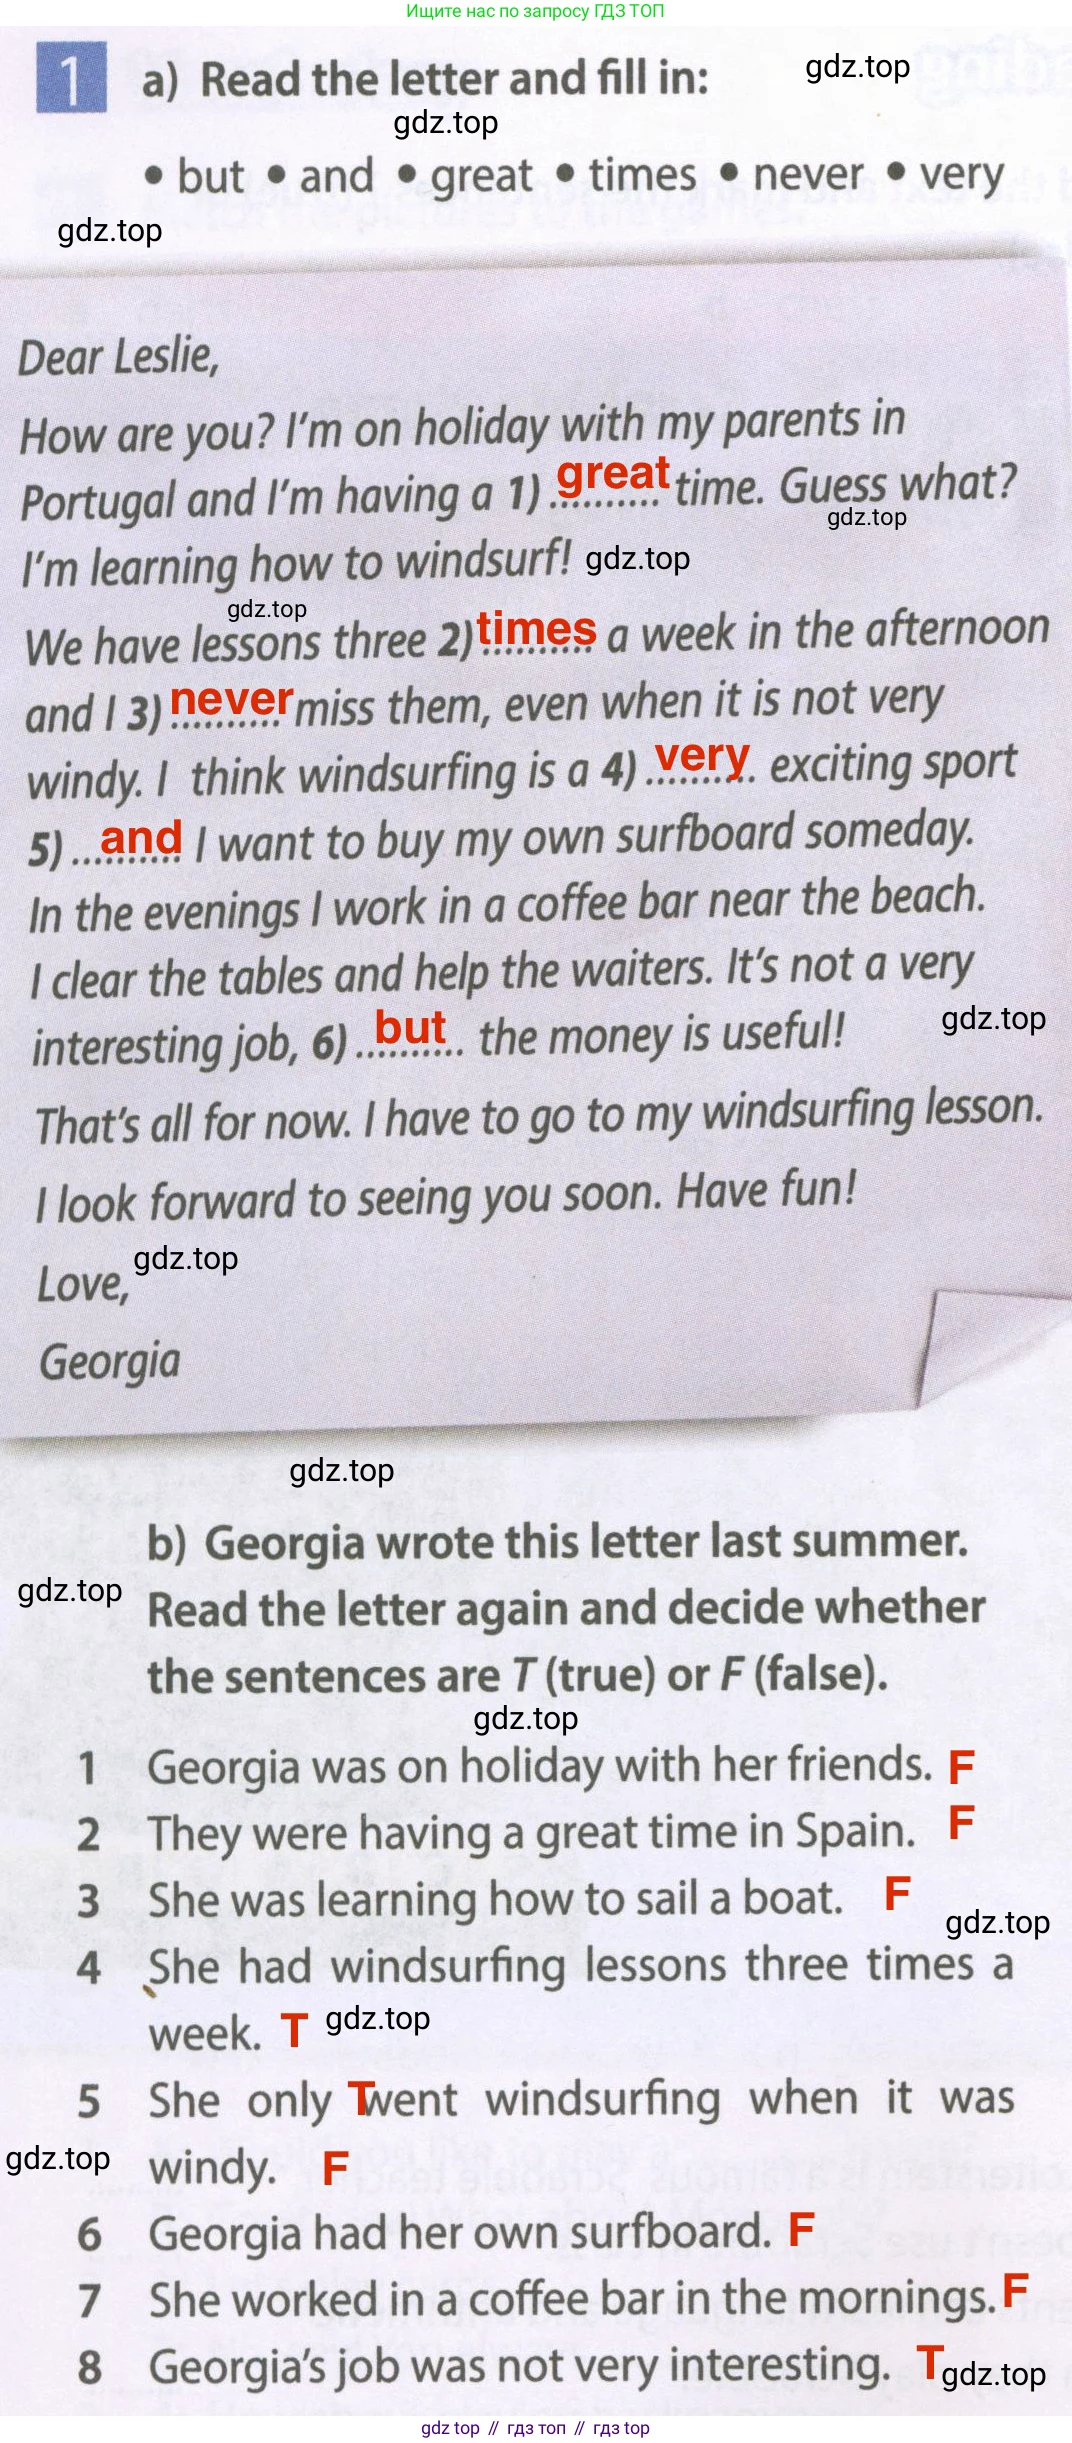 Ищите нас по запросу ГДЗ ТОП
1 a) Read the letter and fill in: gdz.top
gdz.top
• but • and • great • times • never • very
gdz.top
Dear Leslie,
How are you? I'm on holiday with my parents in
Portugal and I'm having a 1) great time. Guess what?
gdz.top
I'm learning how to windsurf! gdz.top
gdz.top
We have lessons three 2) times a week in the afternoon
and I 3) never miss them, even when it is not very
windy. I think windsurfing is a 4) very exciting sport
5) and I want to buy my own surfboard someday.
In the evenings I work in a coffee bar near the beach.
I clear the tables and help the waiters. It's not a very
interesting job, 6) but the money is useful! gdz.top
That's all for now. I have to go to my windsurfing lesson.
I look forward to seeing you soon. Have fun!
Love, gdz.top
Georgia
gdz.top
b) Georgia wrote this letter last summer.
gdz.top Read the letter again and decide whether
the sentences are T (true) or F (false).
gdz.top
1 Georgia was on holiday with her friends. F
2 They were having a great time in Spain. F
3 She was learning how to sail a boat. F
gdz.top
4 She had windsurfing lessons three times a
week. T gdz.top
5 She only T went windsurfing when it was
gdz.top windy. F
6 Georgia had her own surfboard. F
7 She worked in a coffee bar in the mornings. F
8 Georgia's job was not very interesting. T gdz.top
gdz top // гдз топ // гдз top